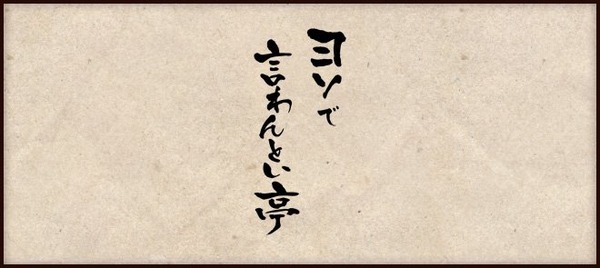 ヨソで
言わんとい亭